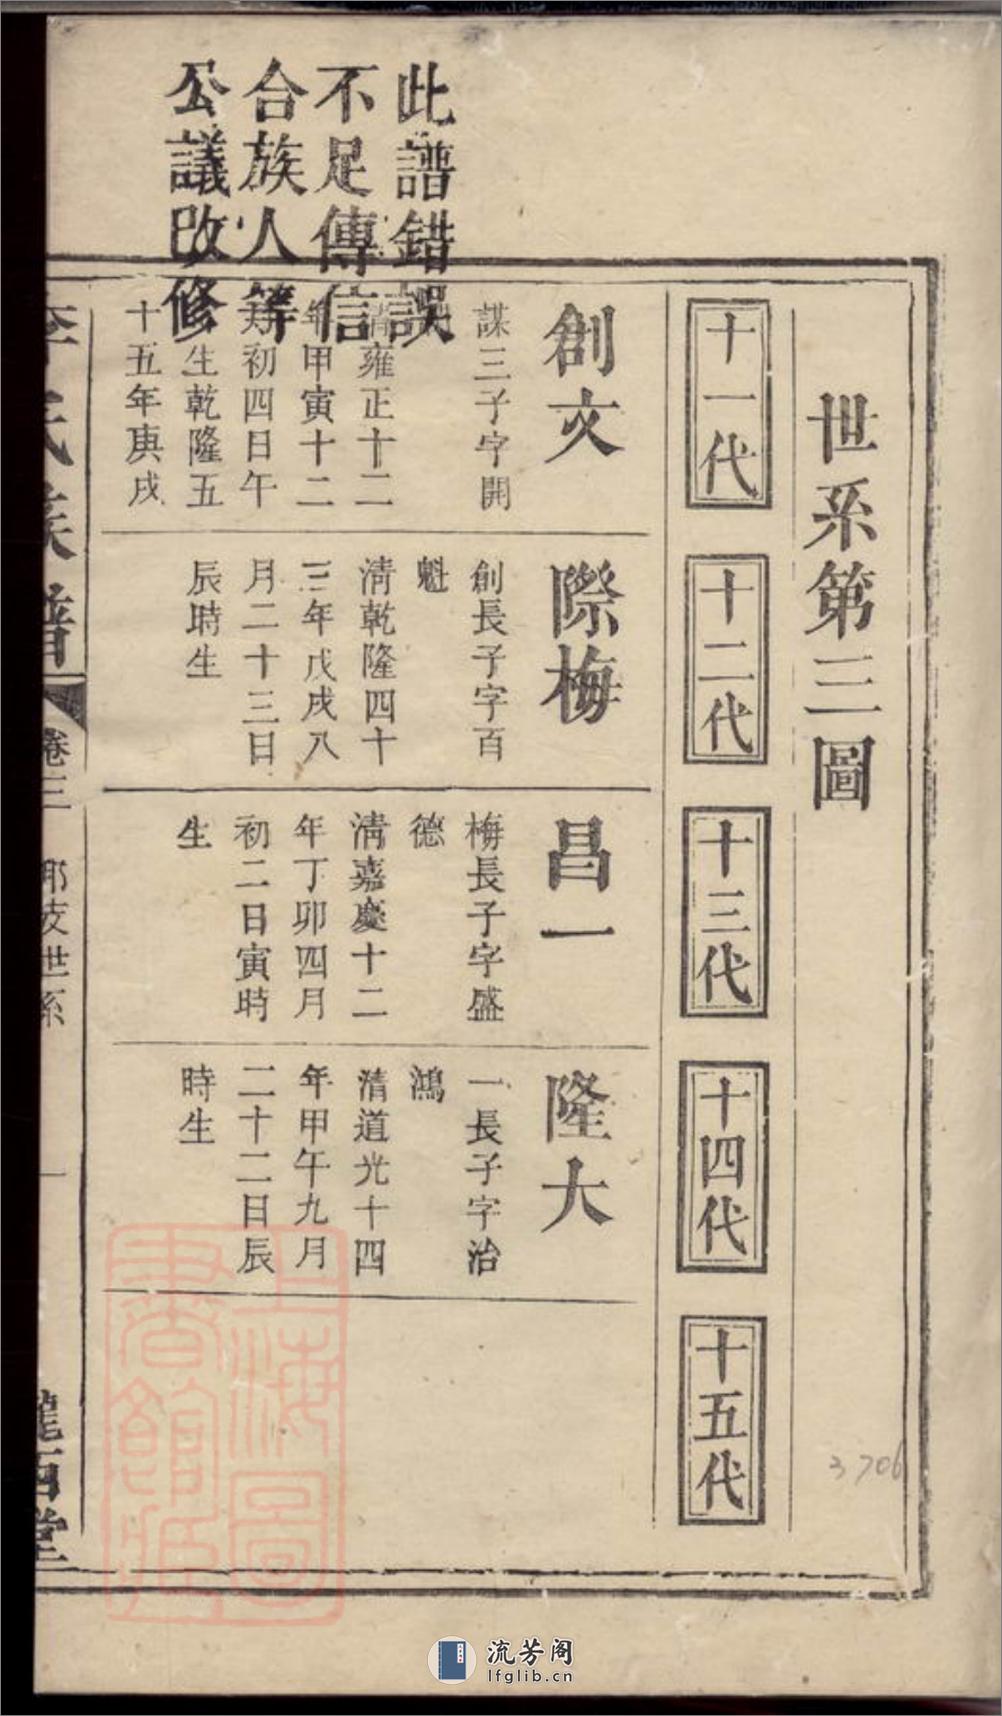 世系第三圖
十一代
十二代
十三代
十四代
十五代
此譜錯誤
不足傳信
合族人等
公議改修
創文
謀三子字開
清雍正十二
年甲寅十二
月初四日午
時生乾隆五
十五年庚戌
際梅
創長子字百
魁
清乾隆四十
三年戊戌八
月二十三日
辰時生
昌一
梅長子字盛
德
清嘉慶十二
年丁卯四月
初二日寅時
生
隆大
一長子字治
鴻
清道光十四
年甲午九月
二十二日辰
時生
李氏族譜
卷三
邢支世系
一
隴西堂
上海圖
書館藏
3706
流芳阁
lfglib.cn